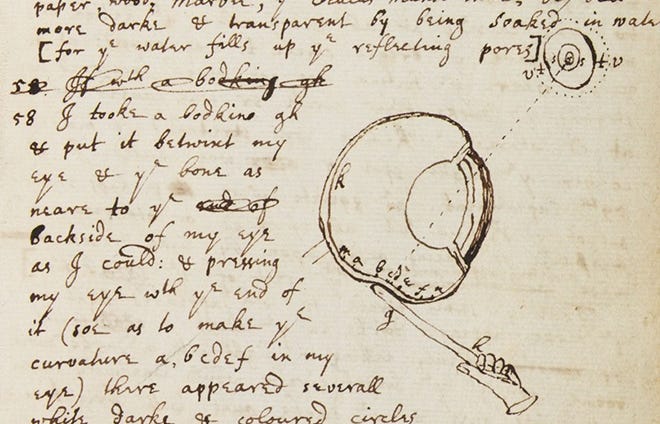 paper, wood, Marble, ye
more darke & transparent by being soaked in wate
[for ye water fills up ye reflecting pores]
58 I tooke a bodkine gh
& put it betwixt my
eye & ye bone as
neare to ye end of
backside of my eye
as I could: & pressing
my eye wth ye end of
it (soe as to make ye
curvature a, bcdef in my
eye) there appeared severall
white darke & coloured circles
r t s s t r
k
m a b c d e f n
g
h